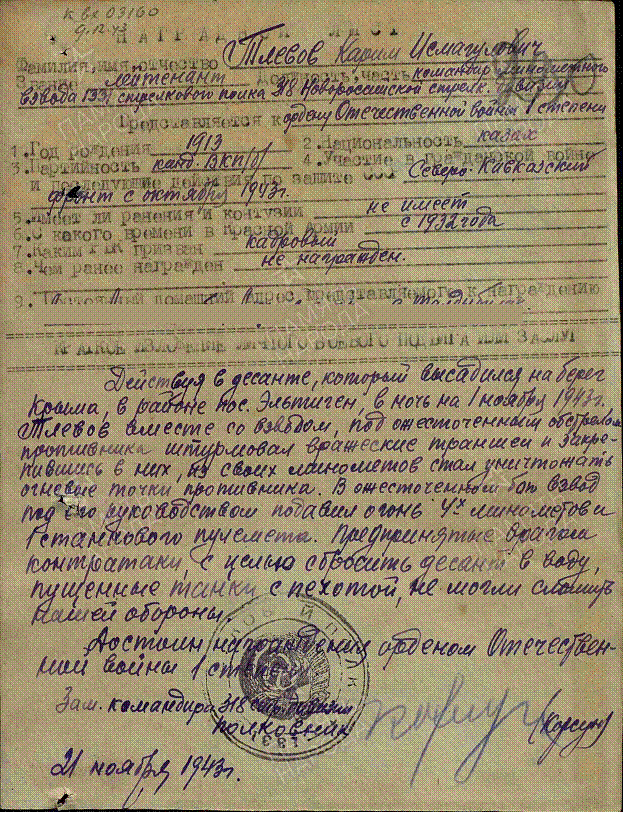 К вх 03160
9.12.43
НАГРАДНОЙ ЛИСТ
Фамилия, имя, отчество Тлевов Карим Исмагулович
Звание лейтенант Должность, часть командир минометного
взвода 1331 стрелкового полка 318 Новороссийской стрелк. дивизии
Представляется к ордену Отечественной войны 1 степени
1. Год рождения 1913 2. Национальность казах
3. Партийность канд. ВКП/б/ 4. Участие в гражданской войне
и последующие действия по защите СССР Северо-Кавказский
фронт с октября 1943г.
5. Имеет ли ранения и контузии не имеет
6. С какого времени в Красной Армии с 1932 года
7. Каким РВК призван кадровый
8. Чем ранее награжден не награжден.
9. Постоянный домашний Адрес представляемого к награждению
КРАТКОЕ ИЗЛОЖЕНИЕ ЛИЧНОГО БОЕВОГО ПОДВИГА ИЛИ ЗАСЛУГ
Действуя в десанте, который высадился на берег
Крыма, в районе пос. Эльтиген, в ночь на 1 ноября 1943г.
Тлевов вместе со взводом, под ожесточенным обстрелом
противника штурмовал вражеские траншеи и закре-
пившись в них, из своих минометов стал уничтожать
огневые точки противника. В ожесточенном бою взвод
под его руководством подавил огонь 4х минометов и
1 станкового пулемета. Предпринятые врагом
контратаки, с целью сбросить десант в воду,
пущенные танки с пехотой, не могли сломить
нашей обороны.
Достоин награждения орденом Отечествен-
ной войны 1 степени
Зам. командира 318 стр. дивизии
полковник
(Корсун)
21 ноября 1943г.